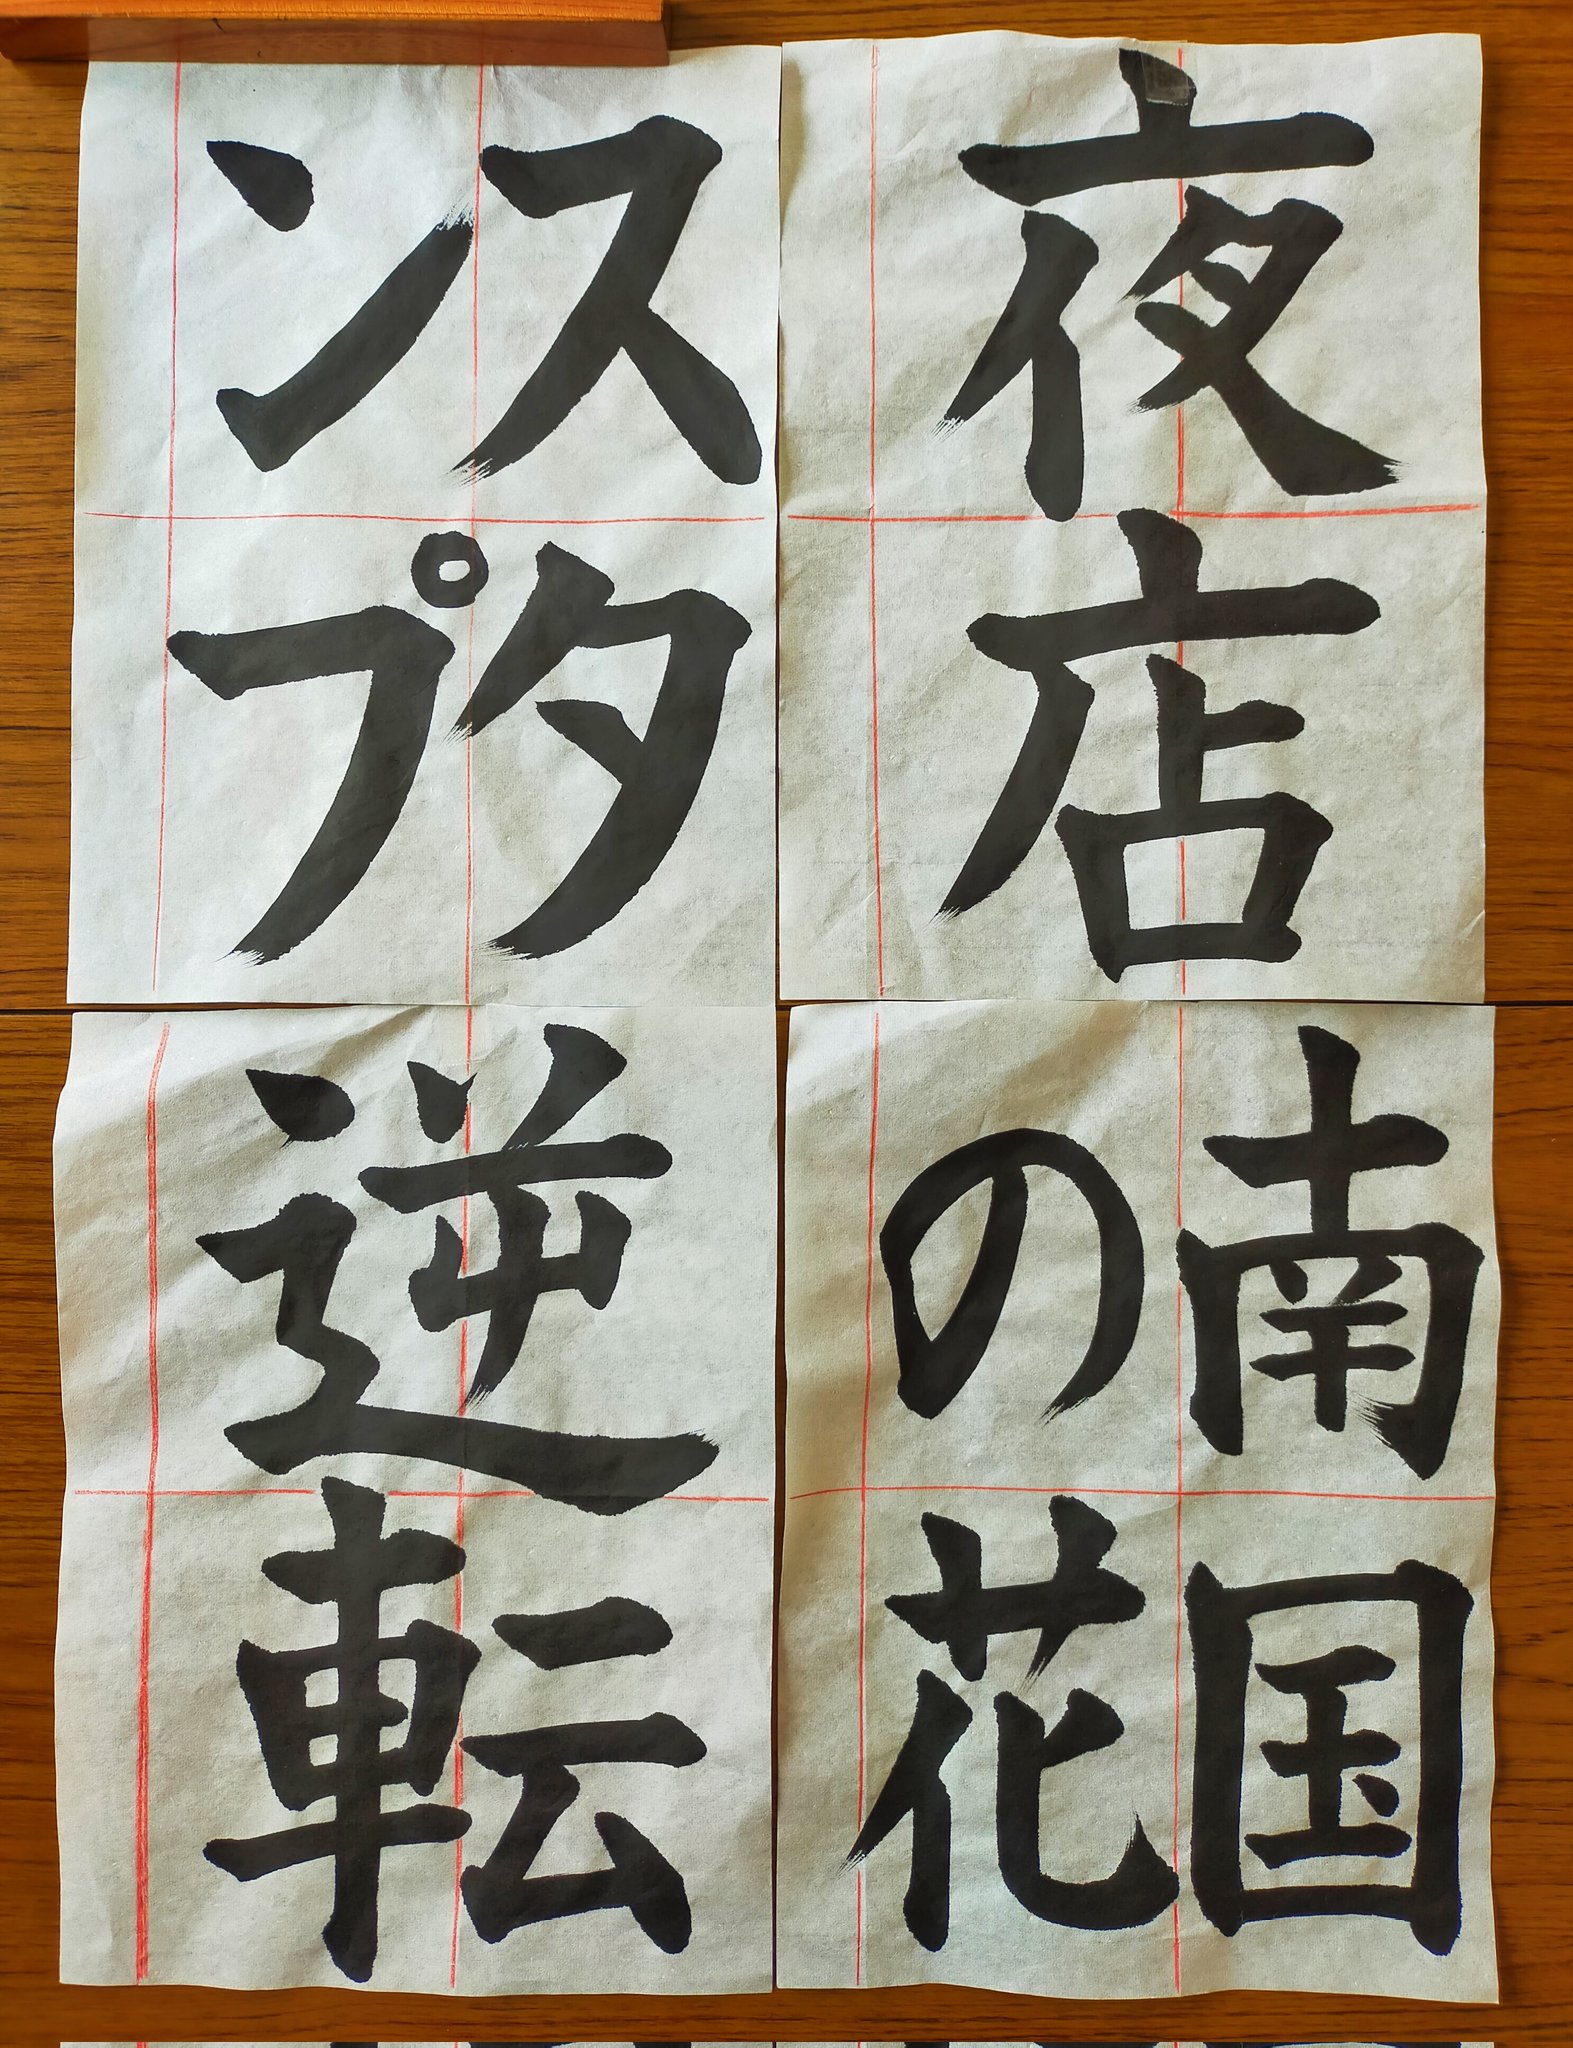 夜店
スタ
ンプ
南国
の花
逆転